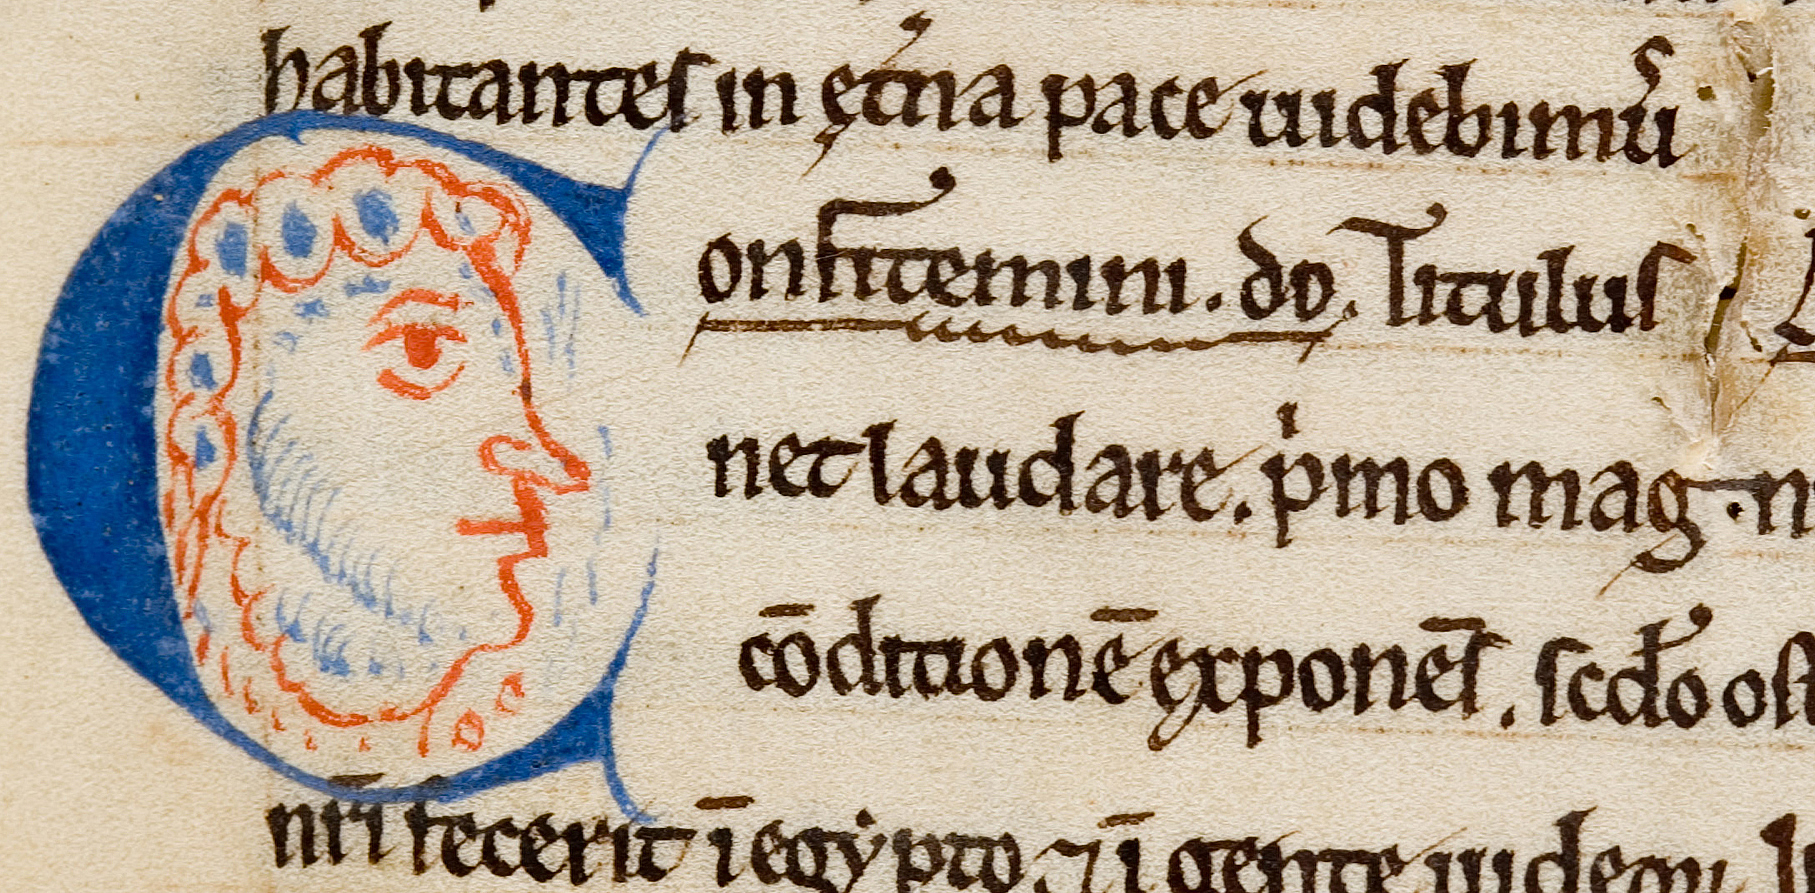 habitantes in ęt̉na pace uidebimuˢ
Confitemini. do. Titulus
net laudare. pⁱmo mag̅. n
cōditionē exponēs. scd̉o ost
nr̄i fecerit ī egẏpto ⁊ ī gente iudeoꝝ